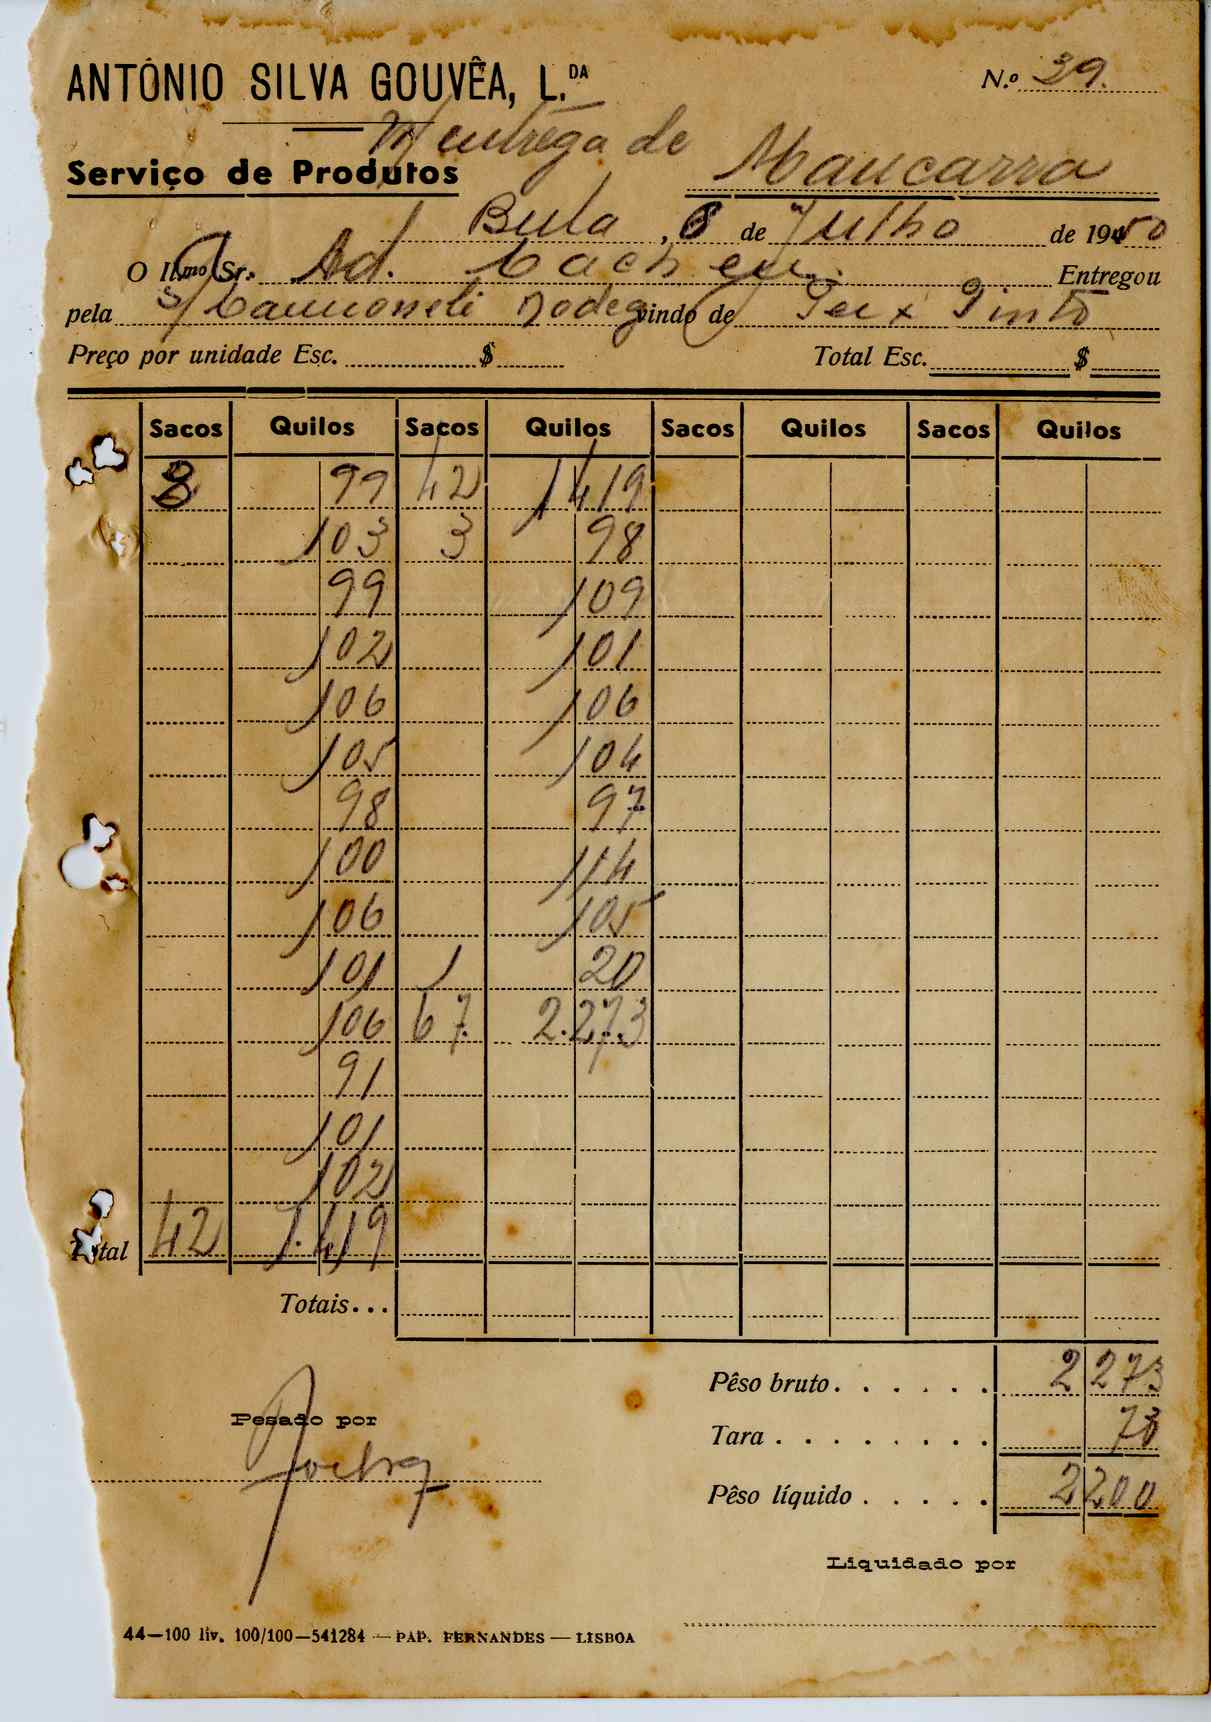 ANTÓNIO SILVA GOUVÊA, L.DA
N.º 39.
N/ entrega de
Serviço de Produtos
Mancarra
Bula, 8 de Julho de 1950
O Il.mo Sr. Ad. Cacheu. Entregou
pela s/ Camionete vindo de Pinto
Preço por unidade Esc. $ Total Esc. $
Sacos Quilos Sacos Quilos Sacos Quilos Sacos Quilos
3 99 42 1419
103 3 98
99 109
102 101
106 106
105 104
98 97
100 114
106 105
101 1 20
106 67 2.273
91
101
102
Total 42 1.419
Totais...
Pêso bruto. . . . . . 2273
Pesado por
Tara . . . . . . . . . 73
Pêso líquido . . . . . 2200
Liquidado por
44—100 liv. 100/100—541284 — PAP. FERNANDES — LISBOA